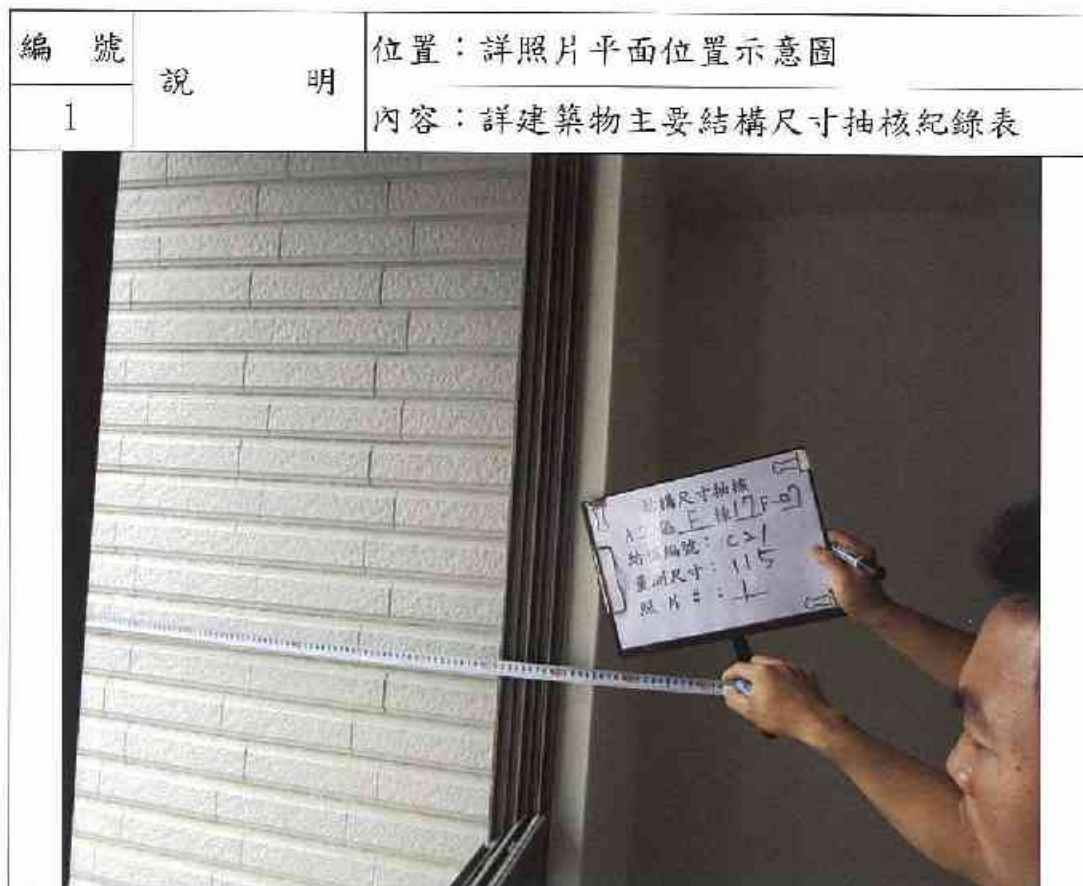 編號
說明
位置：詳照片平面位置示意圖
1
內容：詳建築物主要結構尺寸抽核紀錄表
結構尺寸抽核
E 棟 17F-07
結構編號：C21
量測尺寸：115
照片#：1